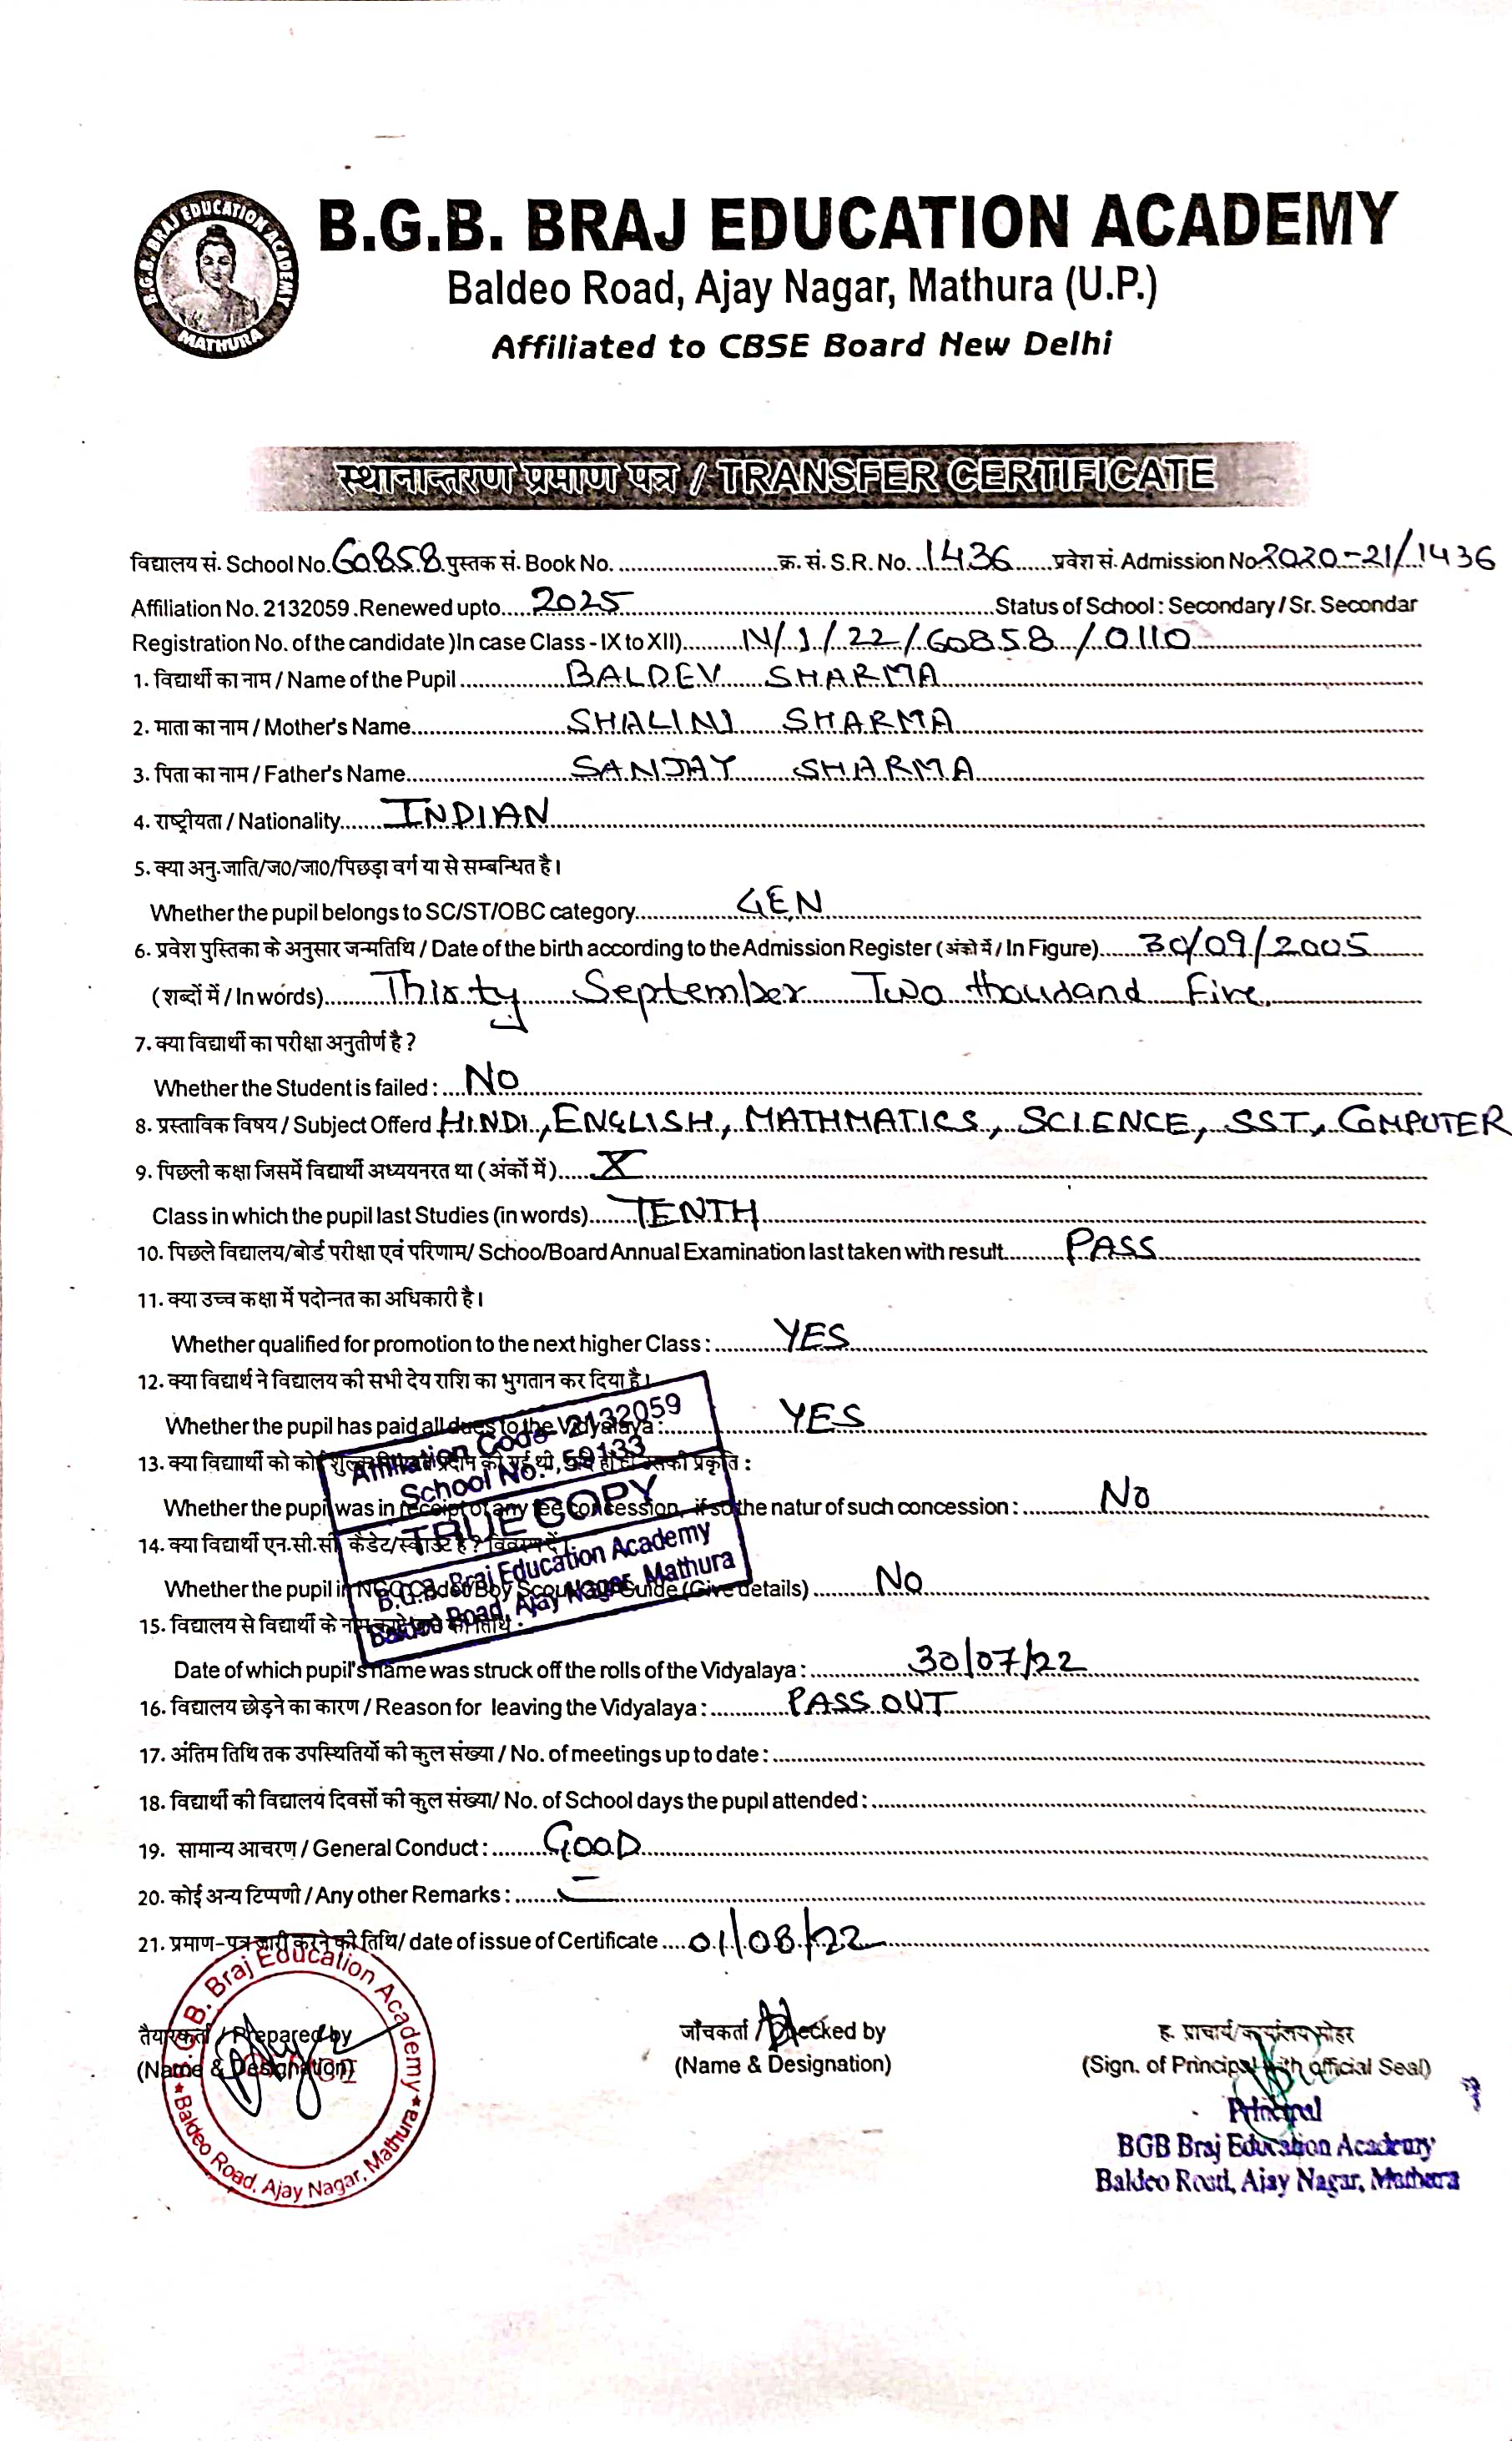 B.G.B. BRAJ EDUCATION ACADEMY
MATHURA
B.G.B. BRAJ EDUCATION ACADEMY
Baldeo Road, Ajay Nagar, Mathura (U.P.)
Affiliated to CBSE Board New Delhi
स्थानान्तरण प्रमाण पत्र / TRANSFER CERTIFICATE
विद्यालय सं. School No. 60858 पुस्तक सं. Book No. ............ क्र. सं. S.R. No. 1436 प्रवेश सं. Admission No 2020-21/1436
Affiliation No. 2132059 .Renewed upto..... 2025 ............ Status of School : Secondary / Sr. Secondar
Registration No. of the candidate )In case Class - IX to XII)............ N/1/22/60858/0110
1. विद्यार्थी का नाम / Name of the Pupil ............ BALDEV SHARMA
2. माता का नाम / Mother's Name............ SHALINI SHARMA
3. पिता का नाम / Father's Name............ SANJAY SHARMA
4. राष्ट्रीयता / Nationality........ INDIAN
5. क्या अनु.जाति/ज0/जा0/पिछड़ा वर्ग या से सम्बन्धित है।
Whether the pupil belongs to SC/ST/OBC category............ GEN
6. प्रवेश पुस्तिका के अनुसार जन्मतिथि / Date of the birth according to the Admission Register (अंको में / In Figure)........ 30/09/2005
(शब्दों में / In words)............ Thirty September Two thousand Five.
7. क्या विद्यार्थी का परीक्षा अनुतीर्ण है ?
Whether the Student is failed : .... No
8. प्रस्ताविक विषय / Subject Offerd HINDI, ENGLISH, MATHMATICS, SCIENCE, SST, COMPUTER
9. पिछली कक्षा जिसमें विद्यार्थी अध्ययनरत था ( अंकों में )...... X
Class in which the pupil last Studies (in words)........ TENTH
10. पिछले विद्यालय/बोर्ड परीक्षा एवं परिणाम/ Schoo/Board Annual Examination last taken with result............ PASS
11. क्या उच्च कक्षा में पदोन्नत का अधिकारी है।
Whether qualified for promotion to the next higher Class : ............ YES
12. क्या विद्यार्थ ने विद्यालय की सभी देय राशि का भुगतान कर दिया है।
Whether the pupil has paid all dues to the Vidyalaya : ............ YES
13. क्या विद्याार्थी को कोई शुल्क प्रदान की गई थी, की प्रकृति :
Whether the pupil was in receipt of any fee concession, if so the natur of such concession : ............ No
14. क्या विद्यार्थी एन.सी.सी. कैडेट/स्काउट है ? विवरण दें।
Whether the pupil in NCC Cadet/Boy Scout Guide (Give details) ........ No
15. विद्यालय से विद्यार्थी के नाम की तिथि :
Date of which pupil's name was struck off the rolls of the Vidyalaya : ............ 30/07/22
Affiliation Code 2132059
School No. 59133
TRUE COPY
B.G.B. Braj Education Academy
Baldeo Road, Ajay Nagar, Mathura
16. विद्यालय छोड़ने का कारण / Reason for leaving the Vidyalaya : ............ PASS OUT
17. अंतिम तिथि तक उपस्थितियों की कुल संख्या / No. of meetings up to date : ............
18. विद्यार्थी की विद्यालय दिवसों की कुल संख्या/ No. of School days the pupil attended : ............
19. सामान्य आचरण / General Conduct : ........ GOOD
20. कोई अन्य टिप्पणी / Any other Remarks : ........
21. प्रमाण-पत्र जारी करने की तिथि/ date of issue of Certificate .... 01/08/22
तैयारकर्ता / Prepared by
(Name & Designation)
B.G.B. Braj Education Academy
Baldeo Road, Ajay Nagar, Mathura
जाँचकर्ता / Checked by
(Name & Designation)
ह. प्राचार्य/कार्यालय मोहर
(Sign. of Principal with official Seal)
Principal
BGB Braj Education Academy
Baldeo Road, Ajay Nagar, Mathura